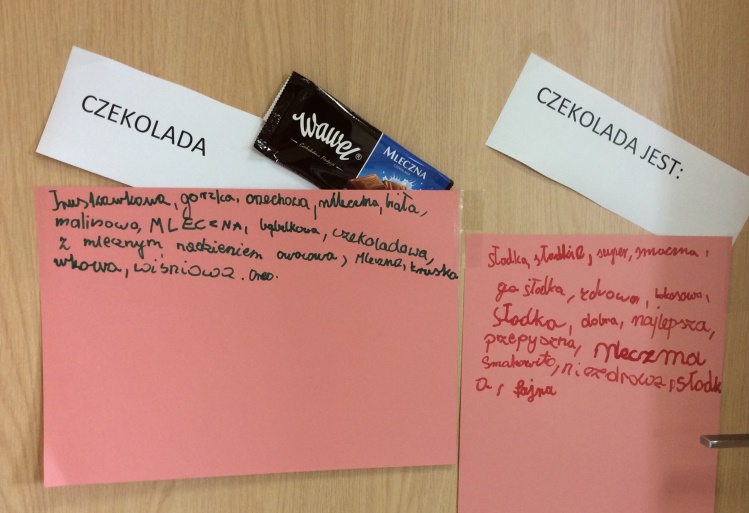 CZEKOLADA
wawel®
MLECZNA
truskawkowa, gorzka, orzechowa, mleczna, biała,
malinowa, MLECZNA, bąbelkowa, czekoladowa,
z mlecznym nadzieniem owocowa, Mleczna, truska
wkowa, wiśniowa. Oreo.
CZEKOLADA JEST:
słodka, słodkie, super, smaczna,
słodka, zdrowa, kokosowa,
słodka, dobra, najlepsza,
przepyszna, Mleczma
Smakowita, niezdrowa, słodk
a, fajna